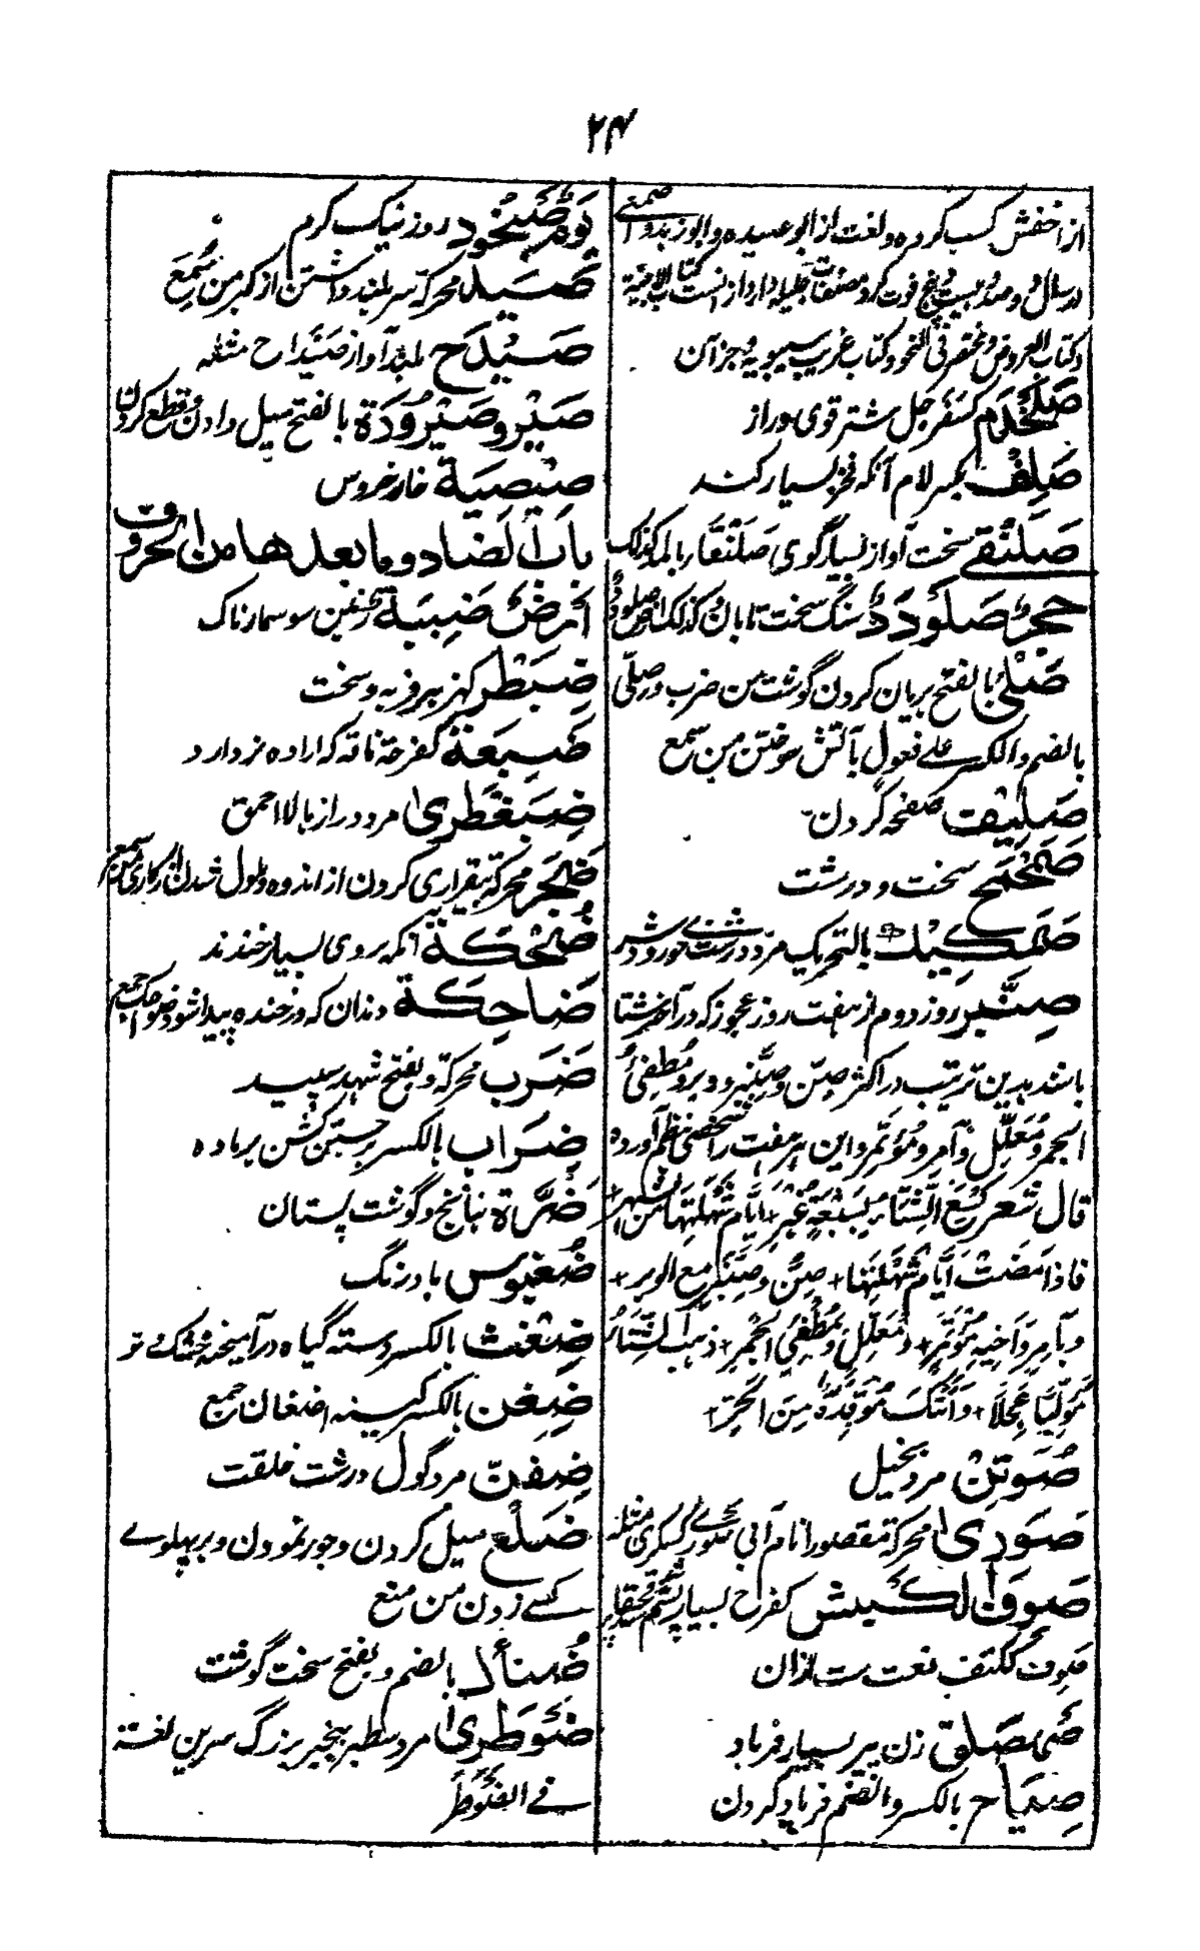 ۲۴
از اخفش کسب کرده و لغت از ابو عبیده و ابو زید و اصمعی
در سال و صد و بیست و پنج فوت کرد مصنفات جلیله دارد از انست کتاب الابنیة
و کتاب العروض و مختصر فی النحو و کتاب غریب سیبویه و جز آن
صَلَخْدَم کسفرجل شتر قوی دراز
صَلِف بکسر لام آنکه فخر بسیار کند
صَلَنْقَی سخت آواز بسیار گوی صَلَنْقَاء بالمد کذلک
حجرٌ صَلَوْدَدٌ سنگ سخت تابان کذلک
صَلْیٌ بالفتح بریان کردن گوشت من ضرب و صُلِیّ
بالضم و الکسر علی فعول بآتش سوختن من سمع
صَلِیف صفحه گردن
صَمَحْمَح سخت و درشت
صَمَکِیک بالتحریک مرد درشت
صِنَّبِر روز دوم از هفت روز عجوز که در آخر شتا
باشد بدین ترتیب در اکثر صِنّ و صِنَّبِر و وبر و مُطفِئُ
الجمر و مُعَلِّل و آمر و مُؤتَمر و این هر هفت را شخصی نظم آورده
قال شعر کُسِعَ الشِّتَاءُ بِسَبْعَةٍ غُبْرٍ + أیَّامِ شَهْلَتِهَا مِنَ الشهر +
فاذا مَضَتْ أیَّامُ شَهْلَتِهَا + صِنٌّ وصِنَّبِرٌ مع الوبر +
وبآمِرٍ وَاَخِیهِ مُؤْتَمِرٍ + ومُعَلِّلٍ ومُطْفِئِ الجَمْرِ + ذهب الشتاءُ
مُوَلِّیًا عَجِلًا + وَأتَتْکَ مُوقِدَةٌ مِنَ الحَرِّ +
صُوَتِنٌ مرد بخیل
صَوَرَی محرکة مقصورا نام آبی
صَوِفَ الکَبْش کفرح بسیار پشم شد
صَوِف ککتف نعت ست ازان
صَهْصَلِق زن پیر بسیار فریاد
صِیَاح بالکسر و الضم فریاد کردن
یَومٌ صَیْخُود روز نیک گرم
صَیَد محرکة سر بلند داشتن از کبر من سمع
صَیْدَح بلند آواز صَیْدَاح مثله
صَیْر و صَیْرُورَة بالفتح میل دادن و قطع کردن
صِیصِیَة خار خروس
باب الضاد وما بعدها من الحروف
اَرضٌ ضَبِبَة سوسمارناک
ضِبَطْر کهزبر فربه و سخت
ضَبِعَة کفرحة ناقه که اراده نر دارد
ضَبَغْطَرَی مرد دراز بالا احمق
ضَجَر محرکة بیقراری کردن از اندوه و ملول شدن از کاری من سمع
ضُحْکَة آنکه بر وی بسیار خندند
ضَاحِکَة دندان که در خنده پیدا شود ضواحک جمع
ضَرَب محرکة و بفتح شهد سپید
ضِرَاب بالکسر برجستن گشن بر ماده
ضَرَّة نبانج و گوشت پستان
ضُغبُوس بادرنگ
ضِغْث بالکسر دسته گیاه درآمیخته خشک و تر
ضِغْن بالکسر کینه اضغان جمع
ضِفَنّ مرد گول درشت خلقت
ضَلْع میل کردن و جور نمودن و بر پهلوے
کسے زدن من منع
ضُنأک بالضم و بفتح سخت گوشت
ضَوْطَرَی مرد سطبر بیخیر بزرگ سرین لغة
فے الضَّوْطَر